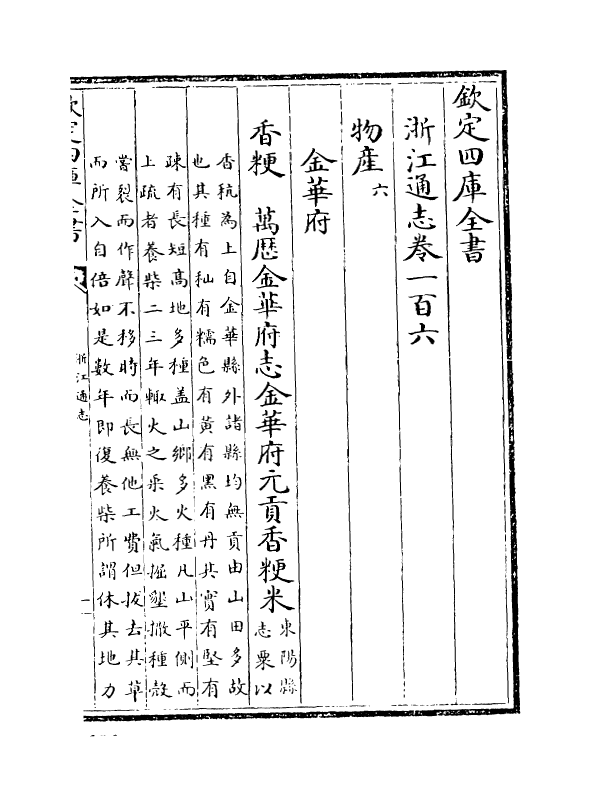 欽定四庫全書
浙江通志卷一百六
物産六
金華府
香粳 萬歴金華府志金華府元貢香粳米
東陽縣
志粟以
香秔為上自金華縣外諸縣均無貢由山田多故
也其種有秈有糯色有黄有黑有丹其實有堅有
疎有長短高地多種盖山鄉多火種凡山平側而
上疏者養柴二三年輙火之乘火氣掘墾撒種殼
嘗裂而作聲不移時而長無他工費但拔去其草
而所入自倍如是數年即復養柴所謂休其地力
欽定四庫全書
浙江通志
一